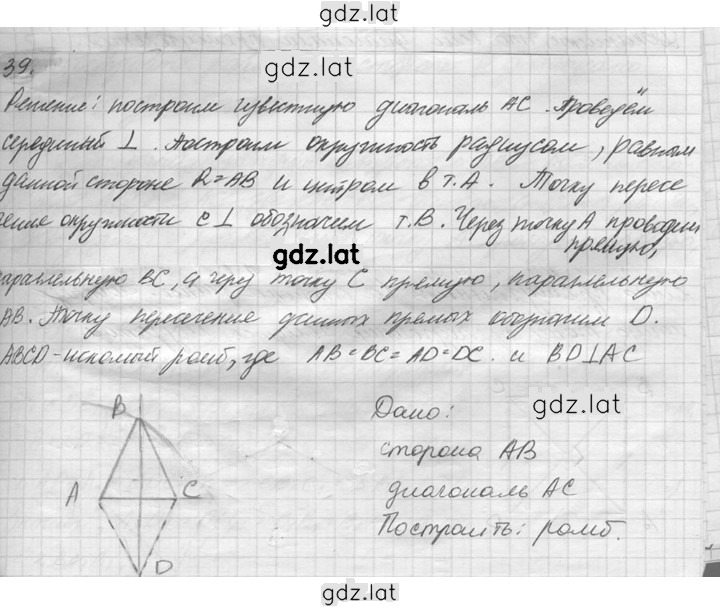 gdz.lat
39.
gdz.lat
Решение: построим известную диагональ АС. Проведём
серединный ⊥. Построим окружность радиусом, равным
данной стороне R=AB и цнтром в т.А. Точку пересе
ения окружности с ⊥ обозначим т.В. Через точку А проводим
прямую,
gdz.lat
араллельную ВС, а через точку С прямую, параллельную
АВ. Точку пересечение данных прямых обозначим D.
ABCD - искомый ромб, где AB=BC=AD=DC. и BD⊥AC
B
A
C
D
Дано:
gdz.lat
сторона АВ
диагональ АС
Построить: ромб.
gdz.lat